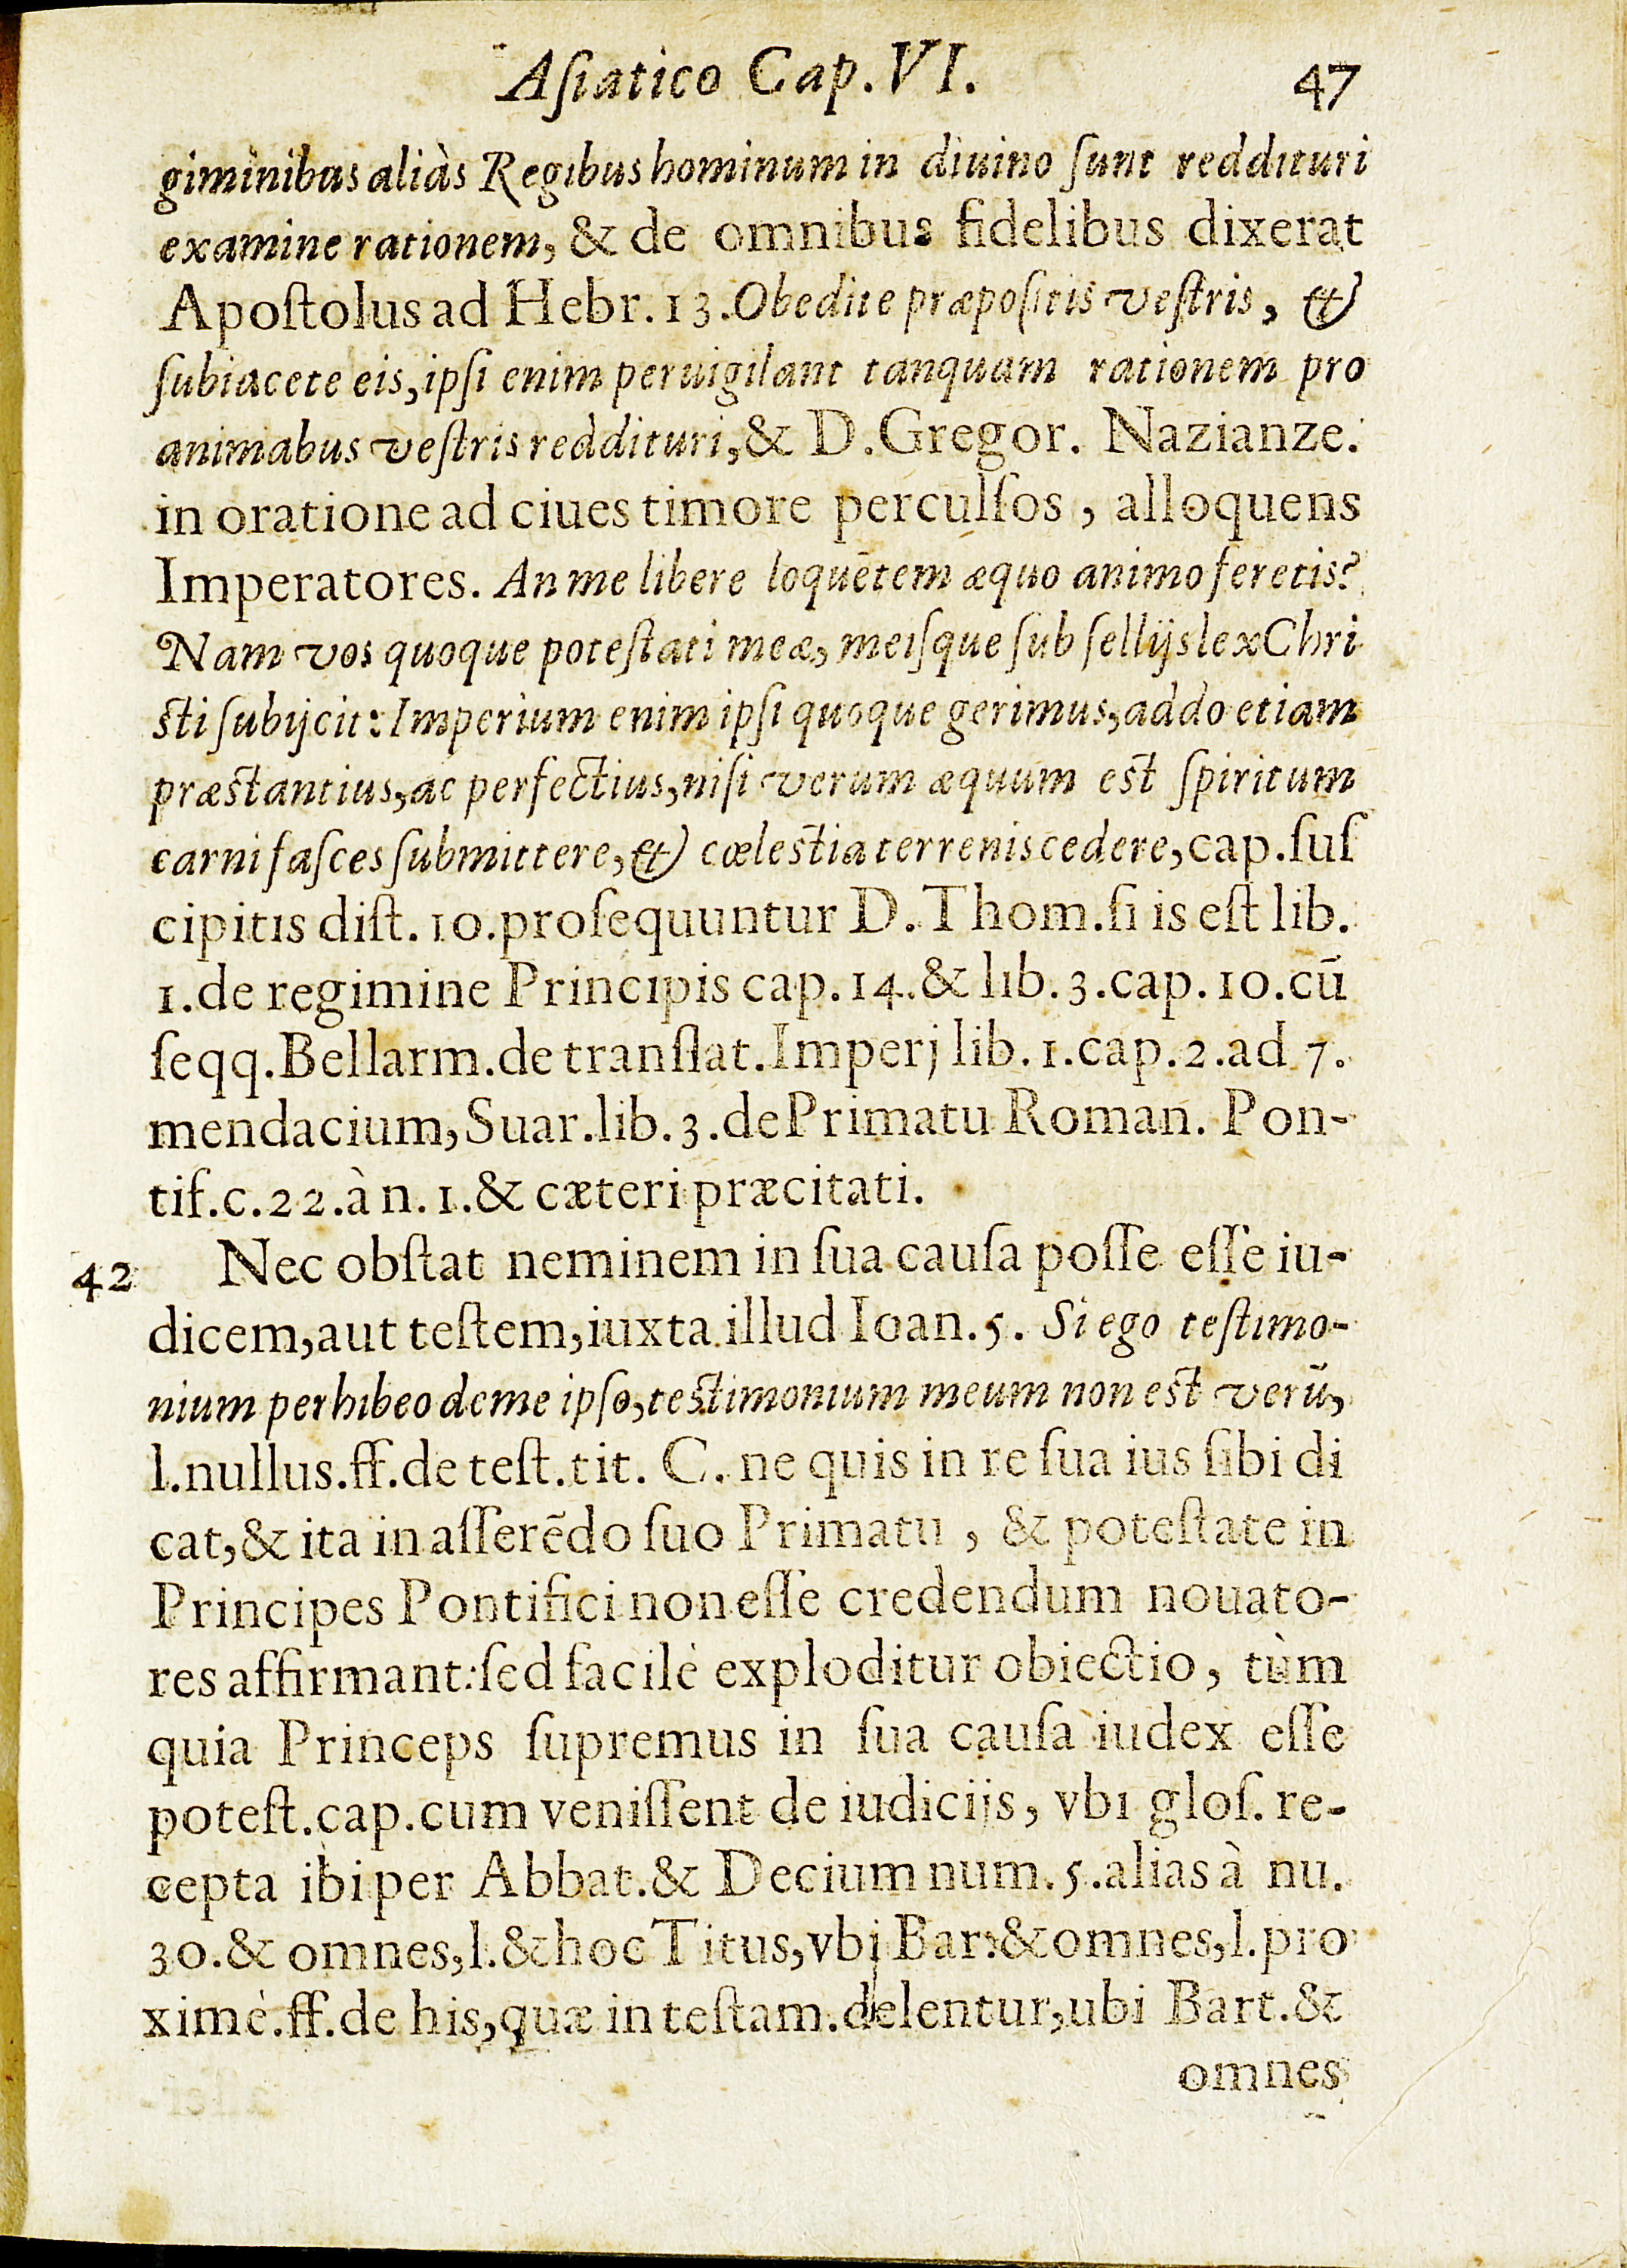 Aſiatico Cap. VI. 47
giminibus aliàs Regibus hominum in diuino ſunt reddituri
examine rationem, & de omnibus fidelibus dixerat
Apoſtolus ad Hebr. 13. Obedite præpoſitis veſtris, &
ſubiacete eis, ipſi enim peruigilant tanquam rationem pro
animabus veſtris reddituri, & D. Gregor. Nazianze.
in oratione ad ciues timore perculſos, alloquens
Imperatores. An me libere loquẽtem æquo animo feretis?
Nam vos quoque poteſtati meæ, meiſque ſub ſellijs lex Chri
ſti ſubijcit: Imperium enim ipſi quoque gerimus, addo etiam
præſtantius, ac perfectius, niſi verum æquum eſt ſpiritum
carni faſces ſubmittere, & cœleſtia terrenis cedere, cap. ſuſ
cipitis diſt. 10. proſequuntur D. Thom. ſi is eſt lib.
1. de regimine Principis cap. 14. & lib. 3. cap. 10. cū
ſeqq. Bellarm. de tranſlat. Imperj lib. 1. cap. 2. ad 7.
mendacium, Suar. lib. 3. de Primatu Roman. Pon-
tif. c. 22. à n. 1. & cæteri præcitati.
42 Nec obſtat neminem in ſua cauſa poſſe eſſe iu-
dicem, aut teſtem, iuxta illud Ioan. 5. Si ego teſtimo-
nium perhibeo de me ipſo, teſtimonium meum non eſt verū,
l. nullus. ff. de teſt. tit. C. ne quis in re ſua ius ſibi di
cat, & ita in aſſerẽdo ſuo Primatu, & poteſtate in
Principes Pontifici non eſſe credendum nouato-
res affirmant: ſed facilè exploditur obiectio, tùm
quia Princeps ſupremus in ſua cauſa iudex eſſe
poteſt. cap. cum veniſſent de iudicijs, vbi gloſ. re-
cepta ibi per Abbat. & Decium num. 5. alias à nu.
30. & omnes, l. & hoc Titus, vbi Bar. & omnes, l. pro
ximè. ff. de his, quæ in teſtam. delentur, ubi Bart. &
omnes